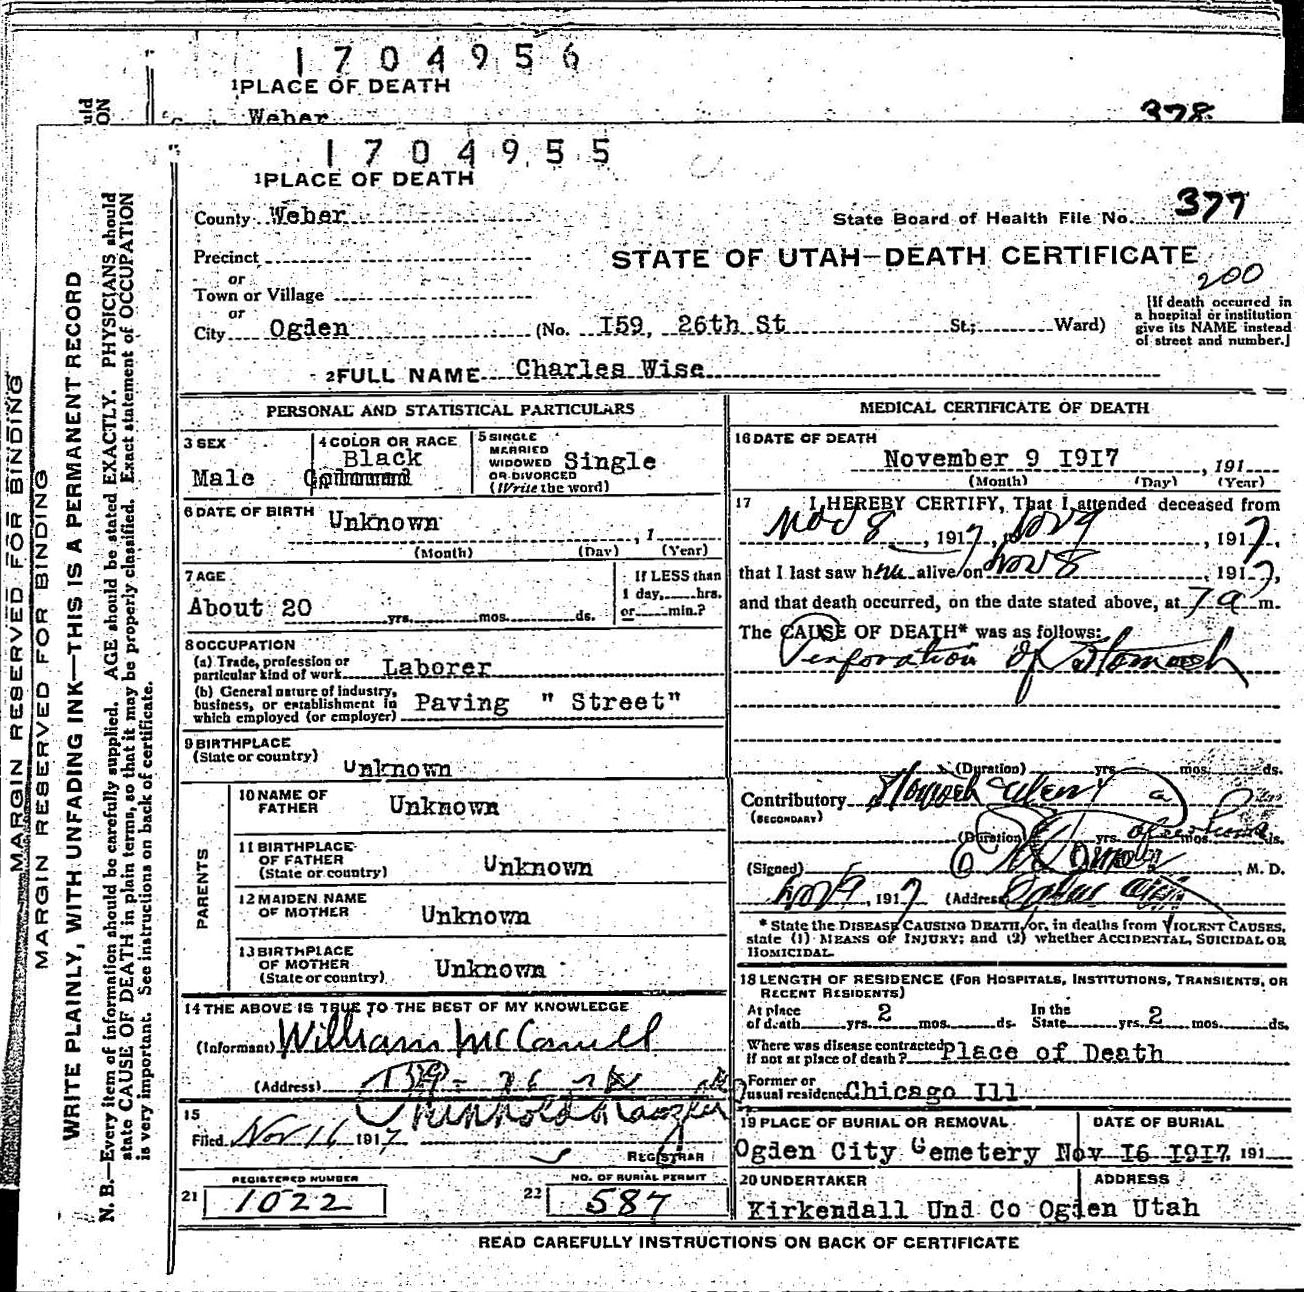 1704956
1 PLACE OF DEATH
Weber
378
1704955
1 PLACE OF DEATH
County Weber
State Board of Health File No. 377
Precinct
STATE OF UTAH—DEATH CERTIFICATE
or
200
Town or Village
or
City Ogden (No. I59, 26th St St.; Ward)
[If death occurred in
a hospital or institution
give its NAME instead
of street and number.]
2 FULL NAME Charles Wise
PERSONAL AND STATISTICAL PARTICULARS
3 SEX
Male
4 COLOR OR RACE
Black
5 SINGLE
MARRIED
WIDOWED
OR DIVORCED
(Write the word)
Single
6 DATE OF BIRTH
Unknown , 1
(Month) (Day) (Year)
7 AGE
About 20 yrs. mos. ds.
If LESS than
1 day, hrs.
or min.?
8 OCCUPATION
(a) Trade, profession or
particular kind of work Laborer
(b) General nature of industry,
business, or establishment in
which employed (or employer) Paving " Street"
9 BIRTHPLACE
(State or country)
Unknown
PARENTS
10 NAME OF
FATHER
Unknown
11 BIRTHPLACE
OF FATHER
(State or country)
Unknown
12 MAIDEN NAME
OF MOTHER
Unknown
13 BIRTHPLACE
OF MOTHER
(State or country)
Unknown
14 THE ABOVE IS TRUE TO THE BEST OF MY KNOWLEDGE
(Informant) William
(Address)
15
Filed Nov 16 1917
REGISTRAR
REGISTERED NUMBER
21 1022
NO. OF BURIAL PERMIT
22 587
MEDICAL CERTIFICATE OF DEATH
16 DATE OF DEATH
November 9 I9I7 , 191
(Month) (Day) (Year)
17 I HEREBY CERTIFY, That I attended deceased from
Nov 8, 1917, to Nov 9, 1917,
that I last saw him alive on Nov 8, 1917,
and that death occurred, on the date stated above, at 7 a m.
The CAUSE OF DEATH* was as follows:
Perforation of Stomach
(Duration) yrs. mos. ds.
Contributory Stomach ulcer
(SECONDARY)
(Duration) yrs. mos. ds.
(Signed) , M. D.
Nov 9, 1917 (Address)
* State the DISEASE CAUSING DEATH, or, in deaths from VIOLENT CAUSES,
state (1) MEANS OF INJURY; and (2) whether ACCIDENTAL, SUICIDAL OR
HOMICIDAL.
18 LENGTH OF RESIDENCE (FOR HOSPITALS, INSTITUTIONS, TRANSIENTS, OR
RECENT RESIDENTS)
At place
of death yrs. 2 mos. ds.
In the
State yrs. 2 mos. ds.
Where was disease contracted
if not at place of death? Place of Death
Former or
usual residence Chicago Ill
19 PLACE OF BURIAL OR REMOVAL
Ogden City Cemetery
DATE OF BURIAL
Nov I6 I9I7, 191
20 UNDERTAKER
Kirkendall Und Co
ADDRESS
Ogden Utah
READ CAREFULLY INSTRUCTIONS ON BACK OF CERTIFICATE
MARGIN RESERVED FOR BINDING
MARGIN RESERVED FOR BINDING
WRITE PLAINLY, WITH UNFADING INK—THIS IS A PERMANENT RECORD
N. B.—Every item of information should be carefully supplied. AGE should be stated EXACTLY. PHYSICIANS should
state CAUSE OF DEATH in plain terms, so that it may be properly classified. Exact statement of OCCUPATION
is very important. See instructions on back of certificate.